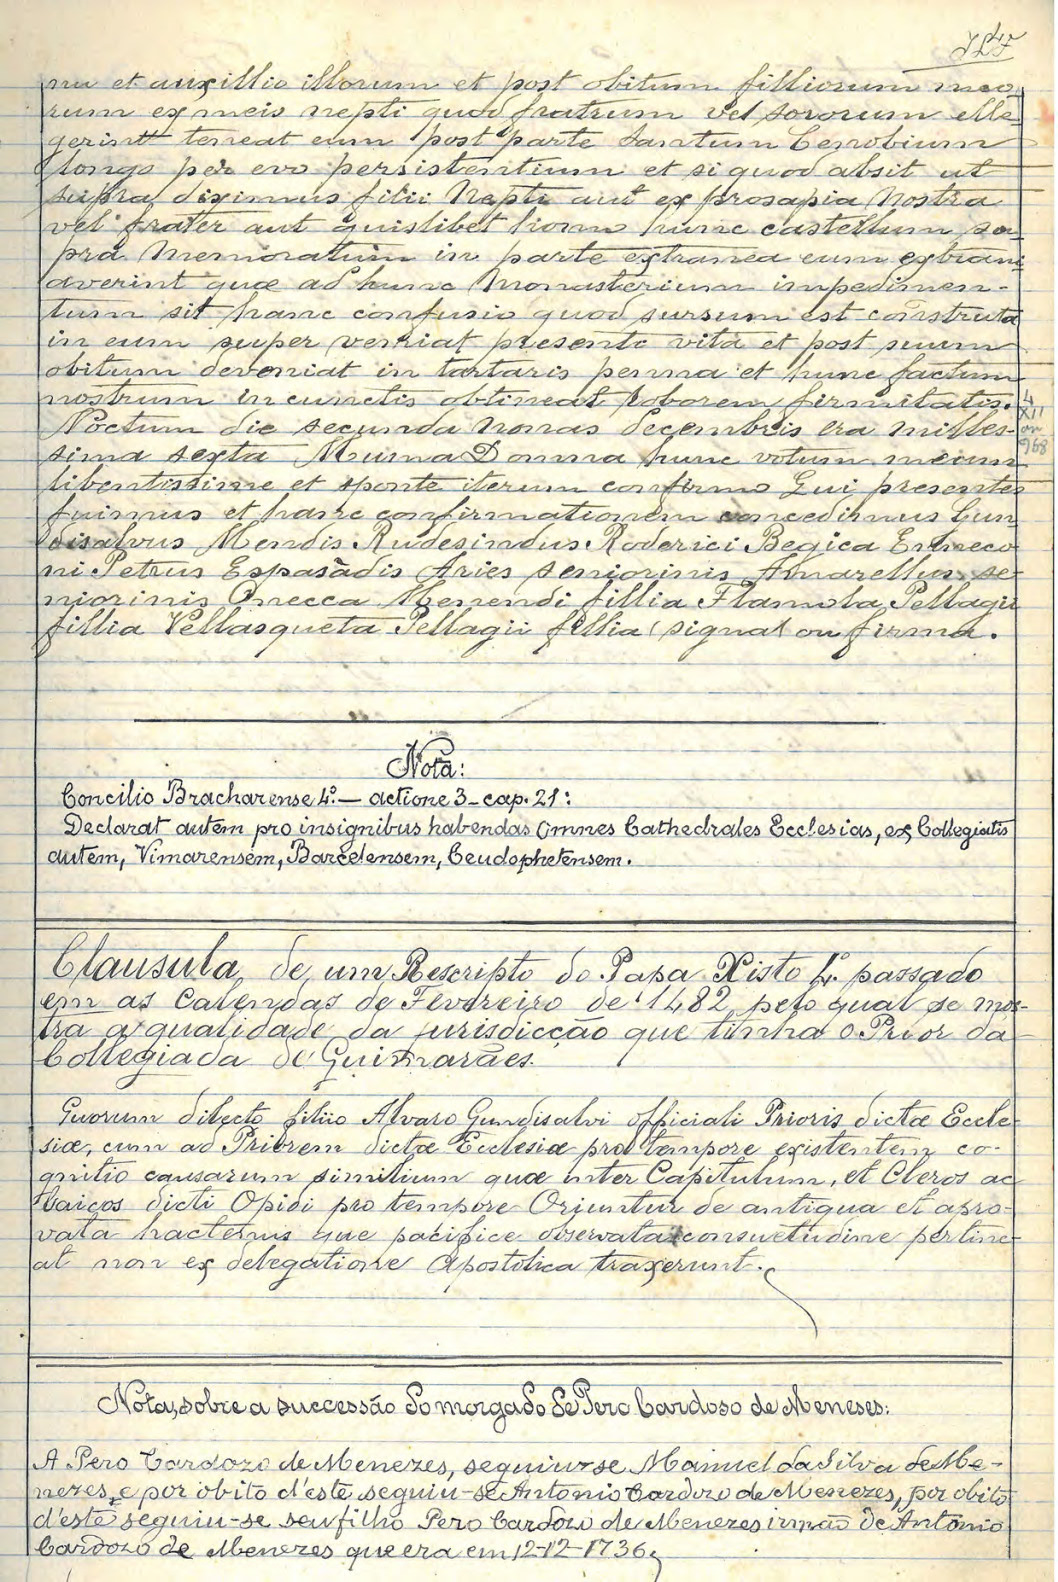 nu et auxillio illorum et post obitum filliorum meo
rum ex meis nepti quod fratrum vel sororum elle-
gerint teneat eum post parte Santum Cenobium
longo per evo persistentium et si quod absit ut
supra diximus filii Nepti aut ex prosapia Nostra
vel frater aut quislibet homo hunc castellum su-
pra Memoratum in parte extranea eum extrani
averint quæ ad hunc Monasterium impedimen-
tum sit hanc confusio quod sursum est construta
in eum super veniat presente vita et post suum
obitum deveniat in tartaris penma et hunc factum
nostrum in cunctis obtineat roborem firmitatis.
Noctum die secunda nonas Decembris era milles-
sima sexta Muma Domna hunc votum meum
libentissime et sponte iterum confirmo Qui presentes
fuimus et hanc confirmationem concedimus Gun
disalvus Mendis Rudesindus Roderici Begica Enneco
ni Petrus Espasadis Aries seniorinis Amarellus se-
niorinis Onecca Menendi fillia Flamula Pellagii
fillia Vellasqueta Pellagii fillia (signal ou firma.
4
XII
968
Nota:
Concilio Bracharense 4º. — actione 3 - cap. 21:
Declarat autem pro insignibus habendas Omnes Cathedrales Ecclesias, ex Collegiatis
autem, Vimarensem, Barcelensem, Ceudophetensem.
Clausula, de um Rescripto do Papa Xisto 4º passado
em as Calendas de Fevereiro de 1482 pelo qual se mos-
tra a qualidade da jurisdicção que tinha o Prior da
Collegiada de Guimarães.
Quorum dilecto filiio Alvaro Gundisalvi officiali Prioris dictæ Eccle-
siæ, cum ad Priorem dictæ Ecclesiæ pro tempore existentem co-
gnitio causarum similium quæ inter Capitulum, et Cleros ac
Laicos dicti Opidi pro tempore Oriuntur de antiqua et apro-
vata hactenus que pacifice observata consuetudine pertine-
at non ex delegatione Apostolica traxerunt.
Nota, sobre a successão do morgado de Pero Cardoso de Meneses:
A Pero Cardozo de Menezes, seguiu-se Manuel da Silva de Me-
nezes, e por obito d'este seguiu-se Antonio Cardozo de Menezes, por obito
d'este seguiu-se seu filho Pero Cardozo de Menezes irmão de Antonio
Cardozo de Menezes que era em 12-12-1736.